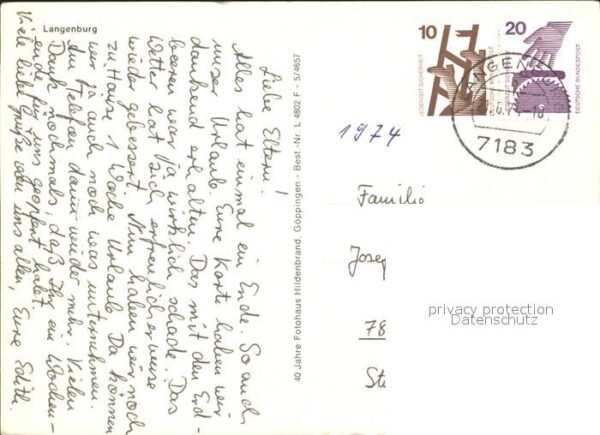 Langenburg
Liebe Eltern!
Alles hat einmal ein Ende. So auch
unser Urlaub. Eure Karte haben wir
dankend erhalten. Das mit den Erd-
beeren war ja wirklich schade. Das
Wetter hat sich erfreulicherweise
wieder gebessert. Nun haben wir noch
zu Hause 1 Woche Urlaub. Da können
wir ja auch noch was unternehmen.
Am Telefon dann wieder mehr. Vielen
Dank nochmals, daß Ihr ein Wochen-
ende für uns geopfert habt.
Viele liebe Grüße von uns allen, Eure Edith.
40 Jahre Fotohaus Hildenbrand, Göppingen - Best.-Nr. L 4802 F - 5/4657
10
JEDERZEIT SICHERHEIT
20
DEUTSCHE BUNDESPOST
LANGENB
7183
1974
Familie
Josep
78
St
privacy protection
Datenschutz